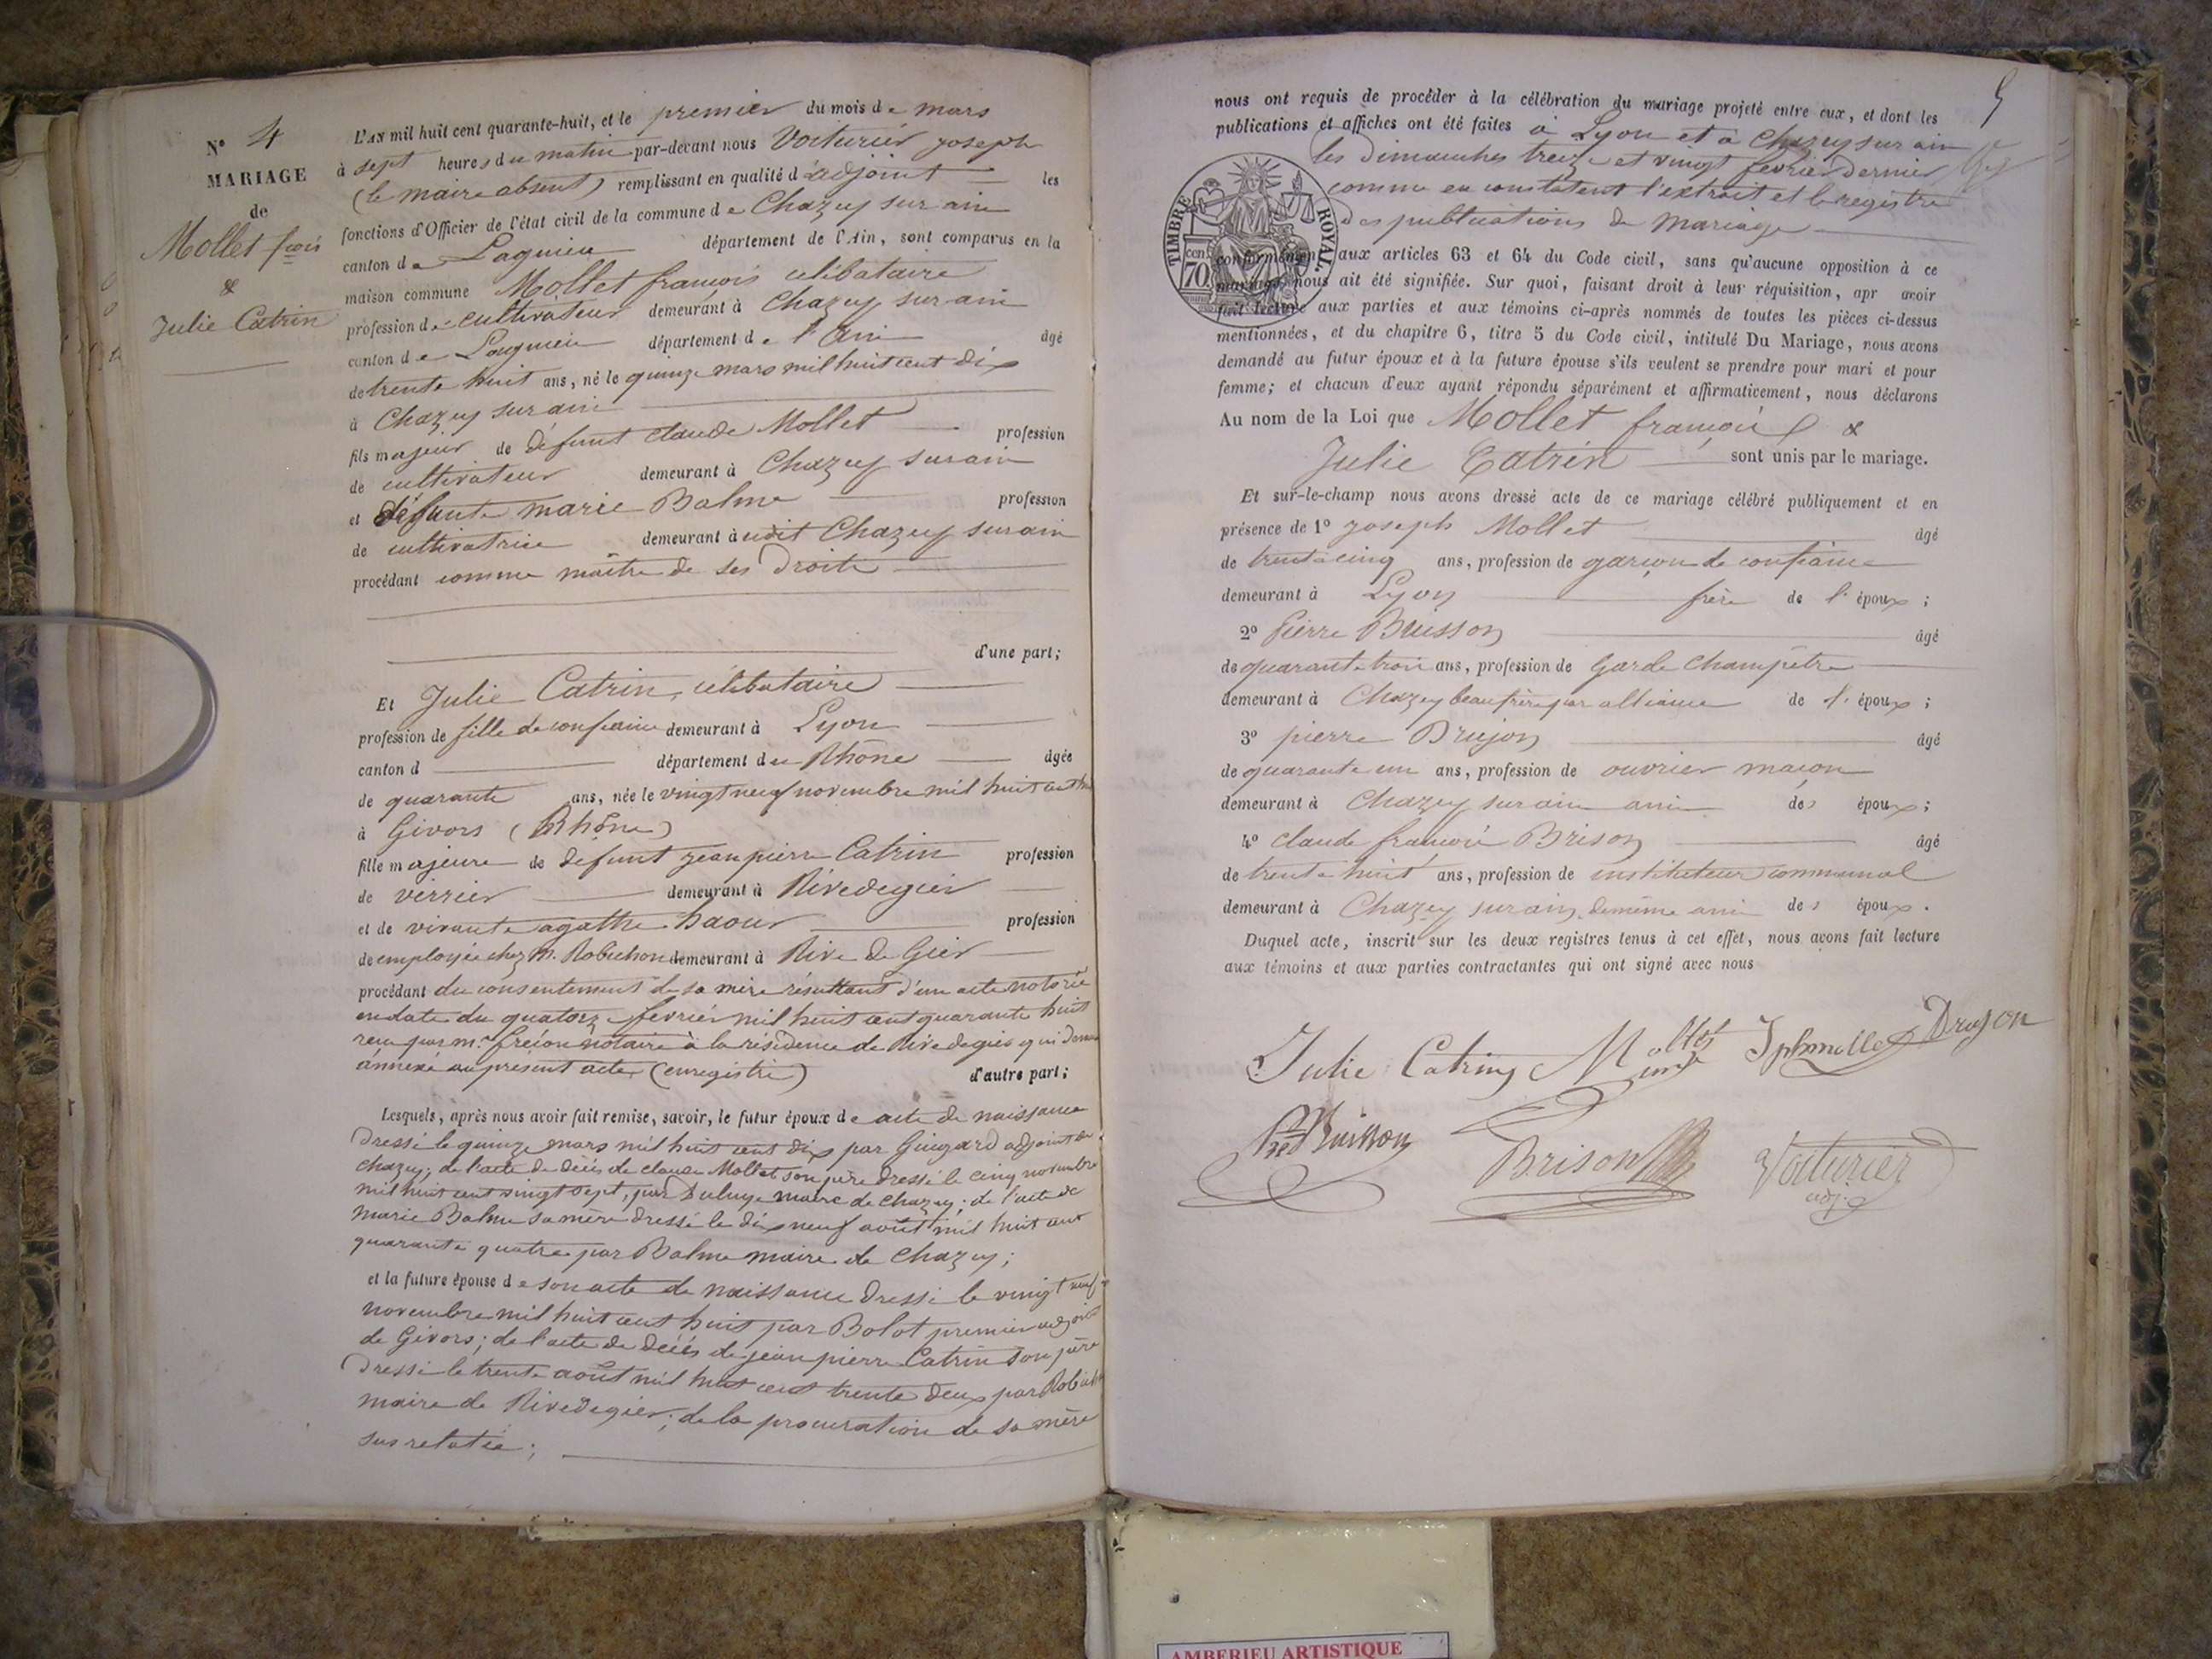 N° 4
MARIAGE
de
Mollet fçois
&
Julie Catrin
L'AN mil huit cent quarante-huit, et le premier du mois de mars
à sept heures du matin par-devant nous Voiturier joseph
(le maire absent) remplissant en qualité d'adjoint les
fonctions d'Officier de l'état civil de la commune de Chazey sur ain
canton de Lagnieu département de l'Ain, sont comparus en la
maison commune Mollet françois célibataire
profession de cultivateur demeurant à Chazey sur ain
canton de Lagnieu département de l'Ain âgé
de trente huit ans, né le quinze mars mil huit cent dix
à Chazey sur ain
fils majeur de défunt claude Mollet profession
de cultivateur demeurant à Chazey sur ain
et défunte marie Balme profession
de cultivatrice demeurant à udit Chazey sur ain
procédant comme maître de ses droits
d'une part;
Et Julie Catrin, célibataire
profession de fille de confiance demeurant à Lyon
canton d département du Rhône âgée
de quarante ans, née le vingt neuf novembre mil huit cent huit
à Givors (Rhône)
fille majeure de défunt jean pierre Catrin profession
de verrier demeurant à Rivedegier
et de vivante agathe haour profession
de employée chez M. Robichon demeurant à Rive de Gier
procédant du consentement de sa mère résultant d'un acte notarié
en date du quatorze février mil huit cent quarante huit
reçu par Mr. notaire à la résidence de Rivedegier qui demeure
annexé au présent acte, (enregistré) d'autre part;
Lesquels, après nous avoir fait remise, savoir, le futur époux de acte de naissance
dressé le quinze mars mil huit cent dix par Guigard adjoint de
chazey; de l'acte de décès de claude Mollet son père dressé le cinq novembre
mil huit cent vingt sept, par maire de Chazey; de l'acte de
marie Balme sa mère dressé le dix neuf août mil huit cent
quarante quatre par Balme maire de Chazey;
et la future épouse de son acte de naissance dressé le vingt neuf
novembre mil huit cent huit par Bolot premier adjoint
de Givors; de l'acte de décès de jean pierre Catrin son père
dressé le trente août mil huit cent trente deux par Robichon
maire de Rivedegier; de la procuration de sa mère
sus relatée;
5
nous ont requis de procéder à la célébration du mariage projeté entre eux, et dont les
publications et affiches ont été faites à Lyon et à Chazey sur ain
les dimanches treize et vingt février dernier
comme en constatent l'extrait et le registre
des publications de mariage
TIMBRE ROYAL
cen. 70.
conformément aux articles 63 et 64 du Code civil, sans qu'aucune opposition à ce
mariage nous ait été signifiée. Sur quoi, faisant droit à leur réquisition, apr avoir
fait lecture aux parties et aux témoins ci-après nommés de toutes les pièces ci-dessus
mentionnées, et du chapitre 6, titre 5 du Code civil, intitulé Du Mariage, nous avons
demandé au futur époux et à la future épouse s'ils veulent se prendre pour mari et pour
femme; et chacun d'eux ayant répondu séparément et affirmativement, nous déclarons
Au nom de la Loi que Mollet françois &
Julie Catrin sont unis par le mariage.
Et sur-le-champ nous avons dressé acte de ce mariage célébré publiquement et en
présence de 1° joseph Mollet âgé
de trente cinq ans, profession de garçon de confiance
demeurant à Lyon frère de l'époux;
2° Pierre Buisson âgé
de quarante trois ans, profession de Garde Champêtre
demeurant à Chazey beaufrère par alliance de l'époux;
3° pierre Drujon âgé
de quarante un ans, profession de ouvrier maçon
demeurant à Chazey sur ain ami des époux;
4° claude françois Brison âgé
de trente huit ans, profession de instituteur communal
demeurant à Chazey sur ain, de même ami des époux.
Duquel acte, inscrit sur les deux registres tenus à cet effet, nous avons fait lecture
aux témoins et aux parties contractantes qui ont signé avec nous
Julie Catrin Mollet Jph mollet Drujon
Buisson Brison Voiturier
adj.
AMBERIEU ARTISTIQUE